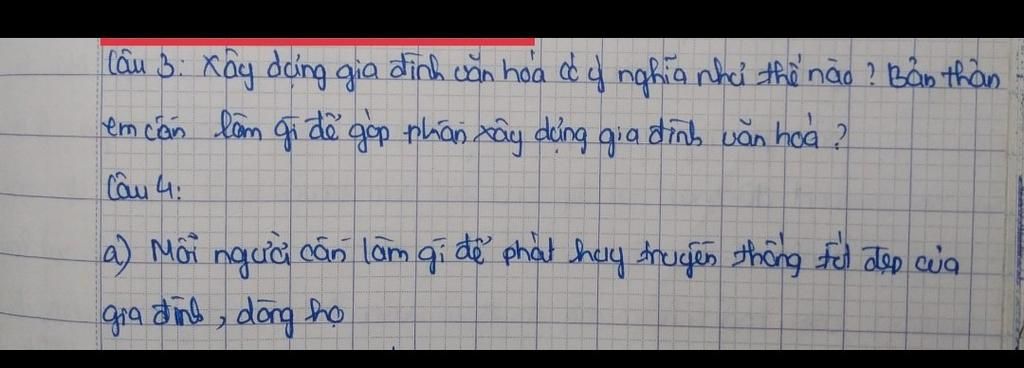 Câu 3: Xây dựng gia đình văn hoá có ý nghĩa như thế nào? Bản thân
em cần làm gì để góp phần xây dựng gia đình văn hoá?
Câu 4:
a) Mỗi người cần làm gì để phát huy truyền thống tốt đẹp của
gia đình, dòng họ